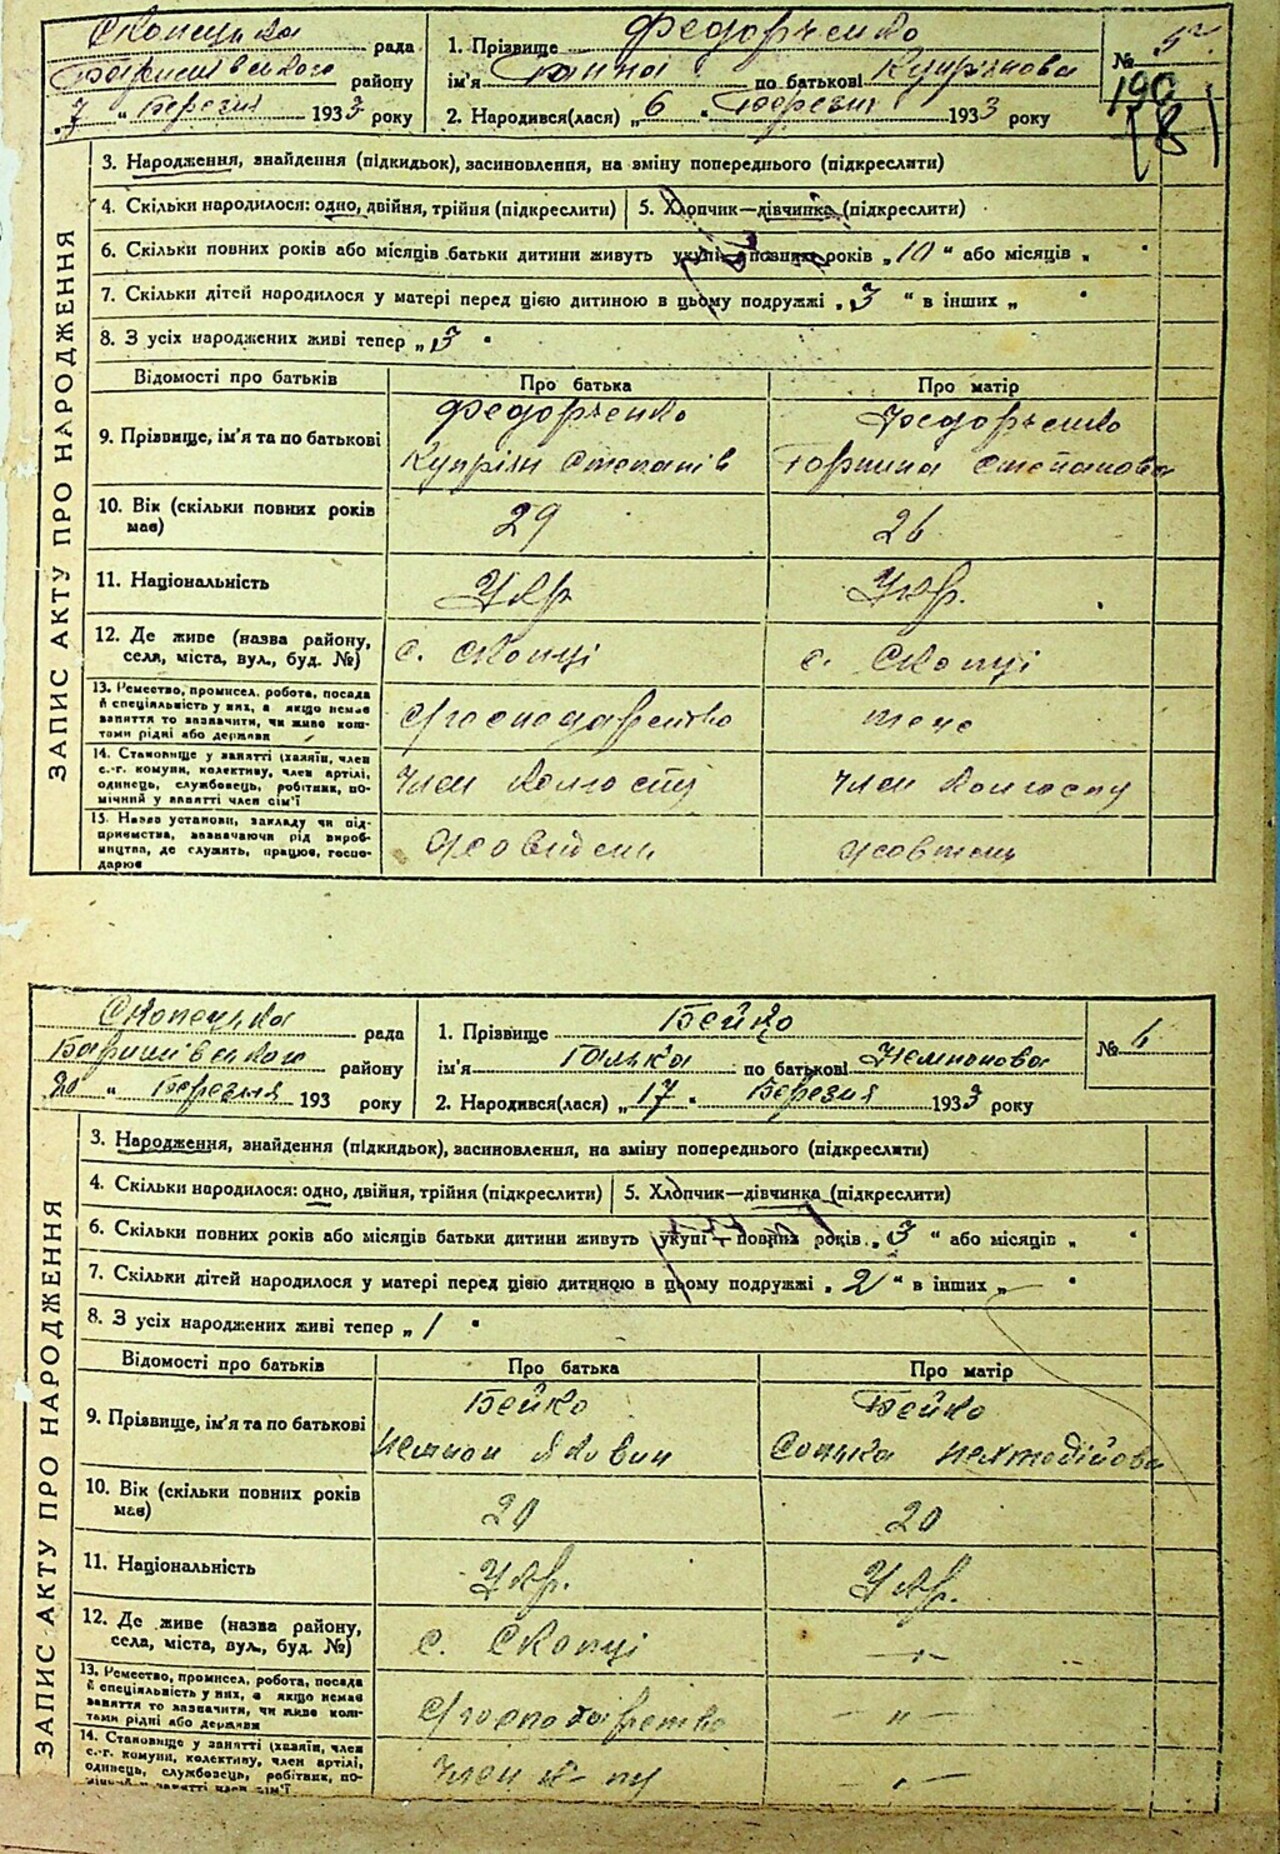 Скопецька рада
Баришівського району
„7 “ Березня 1933 року
1. Прізвище Федорченко
ім'я Ганна по батькові Купріянова
2. Народився(лася) „6 “ Березня 1933 року
№ 5
190
3. Народження, знайдення (підкидьок), засиновлення, на зміну попереднього (підкреслити)
4. Скільки народилося: одно, двійня, трійня (підкреслити) 5. Хлопчик—дівчинка (підкреслити)
6. Скільки повних років або місяців батьки дитини живуть укупі повних років „10 “ або місяців „ “
7. Скільки дітей народилося у матері перед цією дитиною в цьому подружжі „3 “ в інших „ “
8. З усіх народжених живі тепер „3 “
Відомості про батьків Про батька Про матір
9. Прізвище, ім'я та по батькові Федорченко Федорченко
Купріян Степанів Горпина Степанова
10. Вік (скільки повних років має) 29 26
11. Національність Укр Укр.
12. Де живе (назва району, села, міста, вул., буд. №) с. Скопці с. Скопці
13. Ремество, промисел, робота, посада
й спеціяльність у них, а якщо немає
заняття то зазначити, чи живе кош-
тами рідні або держави
с/господарство теж
14. Становище у занятті (хазяїн, член
с.-г. комуни, колективу, член артілі,
одинець, службовець, робітник, по-
мічний у занятті член сім'ї
член колгоспу член колгоспу
15. Назва установи, закладу чи під-
приємства, зазначаючи рід вироб-
ництва, де служить, працює, госпо-
дарює
Жовтень
ЗАПИС АКТУ ПРО НАРОДЖЕННЯ
Скопецька рада
Баришівського району
20 “ Березня 193 року
1. Прізвище Бейко
ім'я Галька по батькові
2. Народився(лася) „17 “ Березня 1933 року
№ 6
3. Народження, знайдення (підкидьок), засиновлення, на зміну попереднього (підкреслити)
4. Скільки народилося: одно, двійня, трійня (підкреслити) 5. Хлопчик—дівчинка (підкреслити)
6. Скільки повних років або місяців батьки дитини живуть укупі — повних років „3 “ або місяців „ “
7. Скільки дітей народилося у матері перед цією дитиною в цьому подружжі „2 “ в інших „ “
8. З усіх народжених живі тепер „1 “
Відомості про батьків Про батька Про матір
9. Прізвище, ім'я та по батькові Бейко Бейко
Якович Сонька
10. Вік (скільки повних років має) 20 20
11. Національність Укр. Укр.
12. Де живе (назва району, села, міста, вул., буд. №) с. Скопці —"—
13. Ремество, промисел, робота, посада
й спеціяльність у них, а якщо немає
заняття то зазначити, чи живе кош-
тами рідні або держави
с/господарство —"—
14. Становище у занятті (хазяїн, член
с.-г. комуни, колективу, член артілі,
одинець, службовець, робітник, по-
мічний у занятті член сім'ї
член к-пу —"—
ЗАПИС АКТУ ПРО НАРОДЖЕННЯ